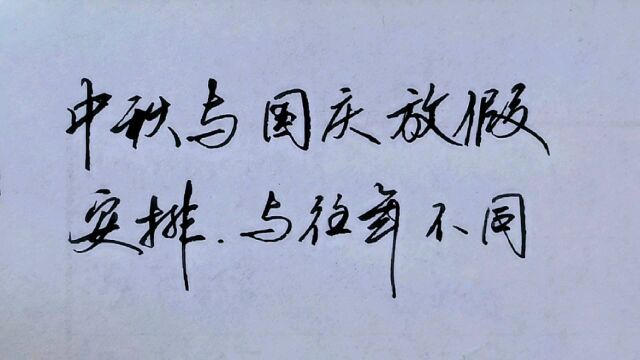 中秋与国庆放假
安排.与往年不同